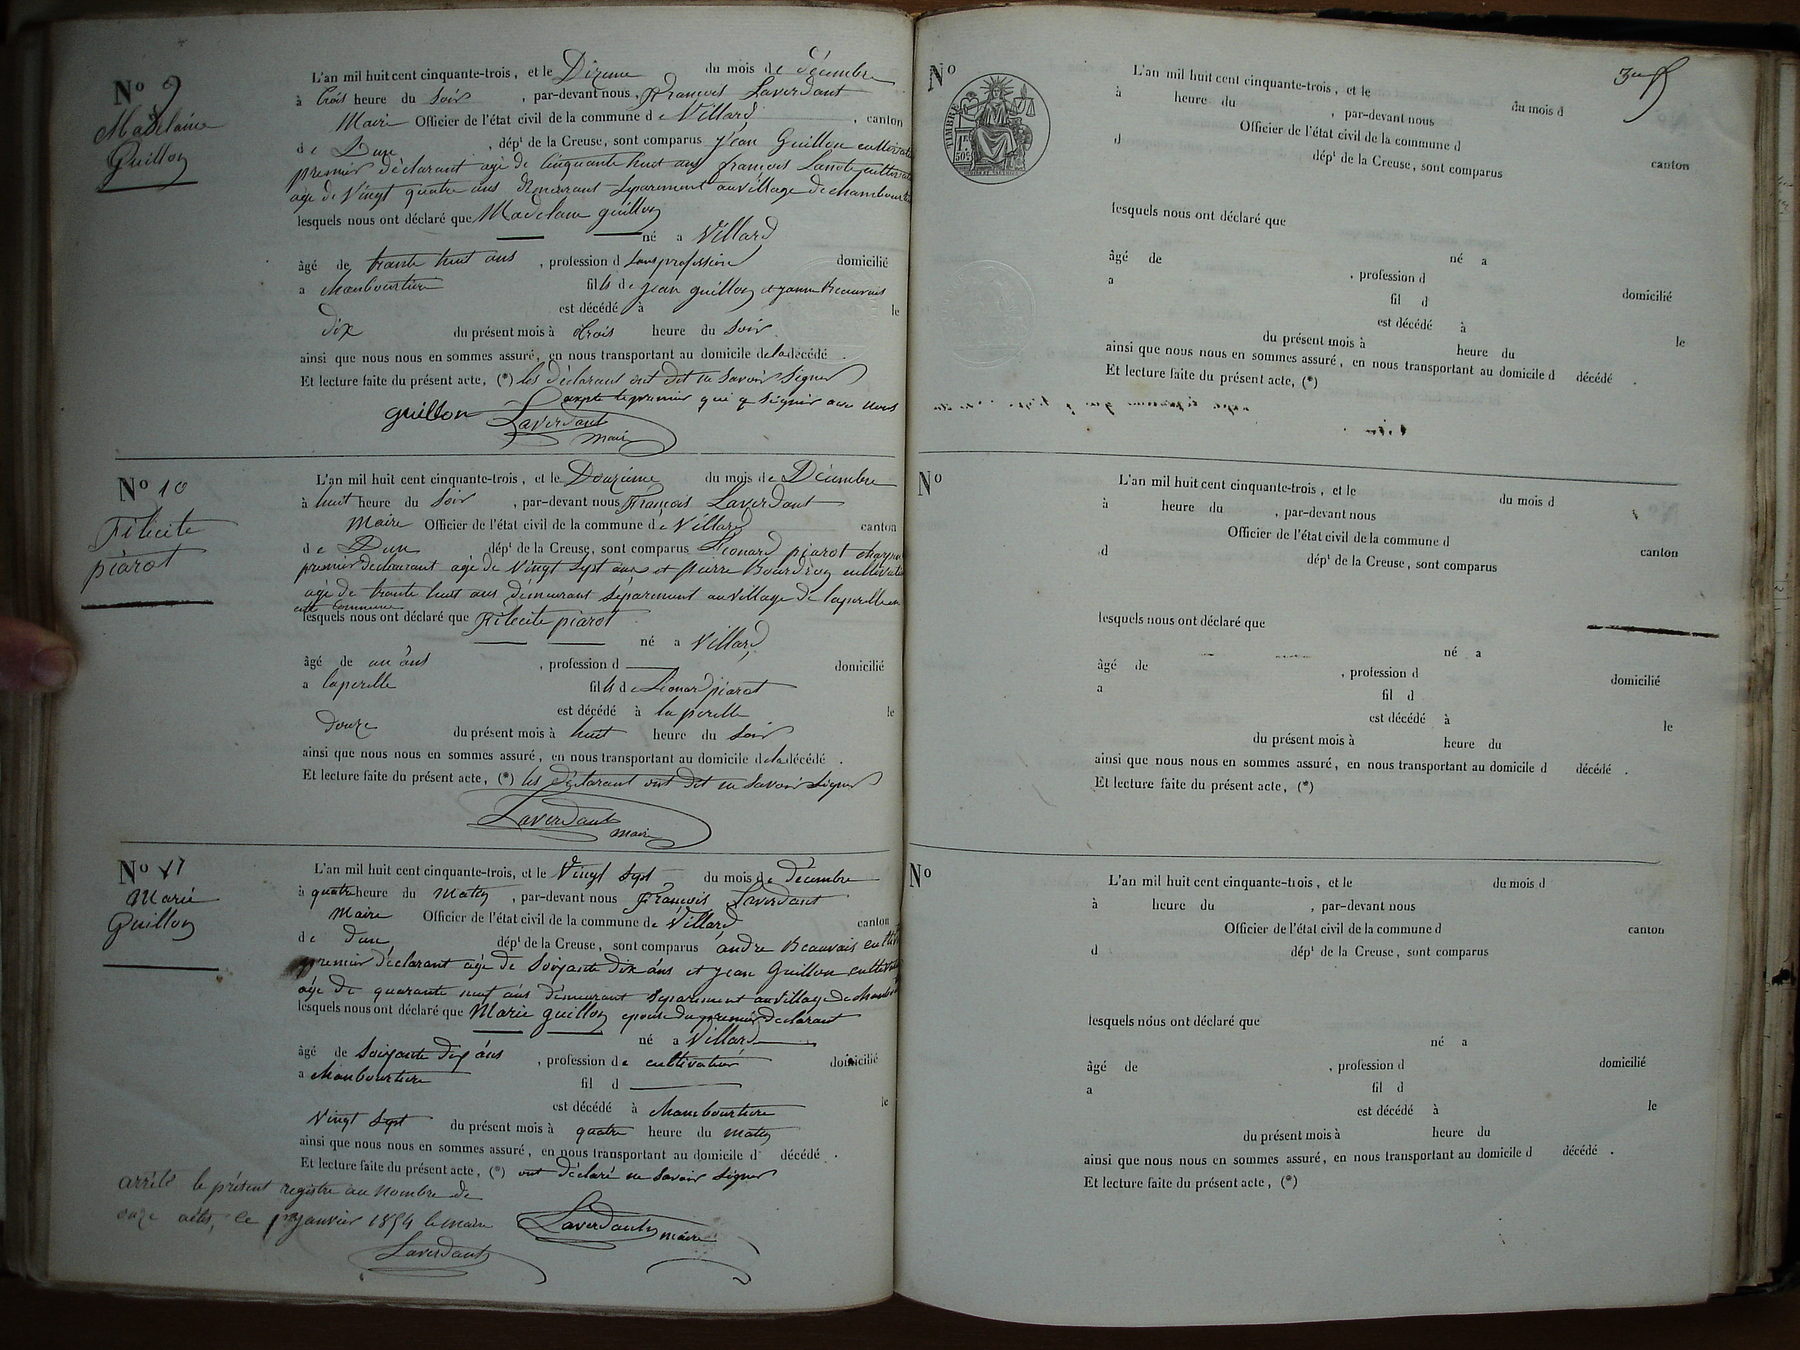 No 9
Madelaine
Guillon
L'an mil huit cent cinquante-trois, et le Dixieme du mois de décembre
à trois heure du Soir, par-devant nous, François Laverdant
Maire Officier de l'état civil de la commune de Villard, canton
de Dun, dépt de la Creuse, sont comparus Jean Guillon
premier déclarant agé de Cinquante huit ans françois
age de Vingt quatre ans demeurant Séparement au village de
lesquels nous ont déclaré que Madelaine guillon
né a Villard
âgé de trante huit ans, profession d Sans profession domicilié
a Chambourtiere fills de jean guillon et Beauvais
est décédé à le
dix du présent mois à trois heure du Soir
ainsi que nous nous en sommes assuré, en nous transportant au domicile de la décédé.
Et lecture faite du présent acte, (*) les déclarant ont dit ne Savoir Signer
le premier qui a Signer avec nous
guillon Laverdant
maire
No 10
Félicite
piarot
L'an mil huit cent cinquante-trois, et le Douzieme du mois de Décembre
à huit heure du Soir, par-devant nous François Laverdant
Maire Officier de l'état civil de la commune de Villard canton
de Dun dépt de la Creuse, sont comparus Léonard piarot
premier declarant agé de Vingt Sept ans et pierre Bourdron
agé de trante huit ans démeurant Séparement au village de laperelle
cette commune
lesquels nous ont déclaré que Félicite piarot
né a Villard
âgé de un ans, profession d domicilié
a laperelle fills de Léonard piarot
est décédé à la perelle le
douze du présent mois à huit heure du Soir
ainsi que nous nous en sommes assuré, en nous transportant au domicile de la décédé.
Et lecture faite du présent acte, (*) les déclarant ont dit ne Savoir Signer
Laverdant
maire
No 11
Marie
Guillon
L'an mil huit cent cinquante-trois, et le Vingt Sept du mois de décembre
à quatre heure du Matin, par-devant nous François Laverdant
Maire Officier de l'état civil de la commune de Villard canton
de dun, dépt de la Creuse, sont comparus andre Beauvais
premier déclarant agé de Soixante dix ans et jean Guillon
age de quarante neuf ans démeurant Séparement au Village de
lesquels nous ont déclaré que Marie guillon epouse du premier déclarant
né a Villard
âgé de Soixante dix ans, profession de cultivatrice domicilié
a Chambourtiere fil d
est décédé à Chambourtiere le
Vingt Sept du présent mois à quatre heure du matin
ainsi que nous nous en sommes assuré, en nous transportant au domicile d décédé.
Et lecture faite du présent acte, (*) ont déclaré ne Savoir Signer
arrêté le présent registre au nombre de
onze actes, ce 1er janvier 1854 le maire
Laverdant maire
Laverdant
No
TIMBRE
1F. 50c.
L'an mil huit cent cinquante-trois, et le du mois d
à heure du, par-devant nous
Officier de l'état civil de la commune d
d dépt de la Creuse, sont comparus canton
lesquels nous ont déclaré que
né a
âgé de, profession d
a fil d domicilié
est décédé à
du présent mois à heure du le
ainsi que nous nous en sommes assuré, en nous transportant au domicile d décédé.
Et lecture faite du présent acte, (*)
No
L'an mil huit cent cinquante-trois, et le du mois d
à heure du, par-devant nous
Officier de l'état civil de la commune d
d dépt de la Creuse, sont comparus canton
lesquels nous ont déclaré que
né a
âgé de, profession d
a fil d domicilié
est décédé à
du présent mois à heure du le
ainsi que nous nous en sommes assuré, en nous transportant au domicile d décédé.
Et lecture faite du présent acte, (*)
No
L'an mil huit cent cinquante-trois, et le du mois d
à heure du, par-devant nous
Officier de l'état civil de la commune d canton
d dépt de la Creuse, sont comparus
lesquels nous ont déclaré que
né a
âgé de, profession d domicilié
a fil d
est décédé à le
du présent mois à heure du
ainsi que nous nous en sommes assuré, en nous transportant au domicile d décédé.
Et lecture faite du présent acte, (*)